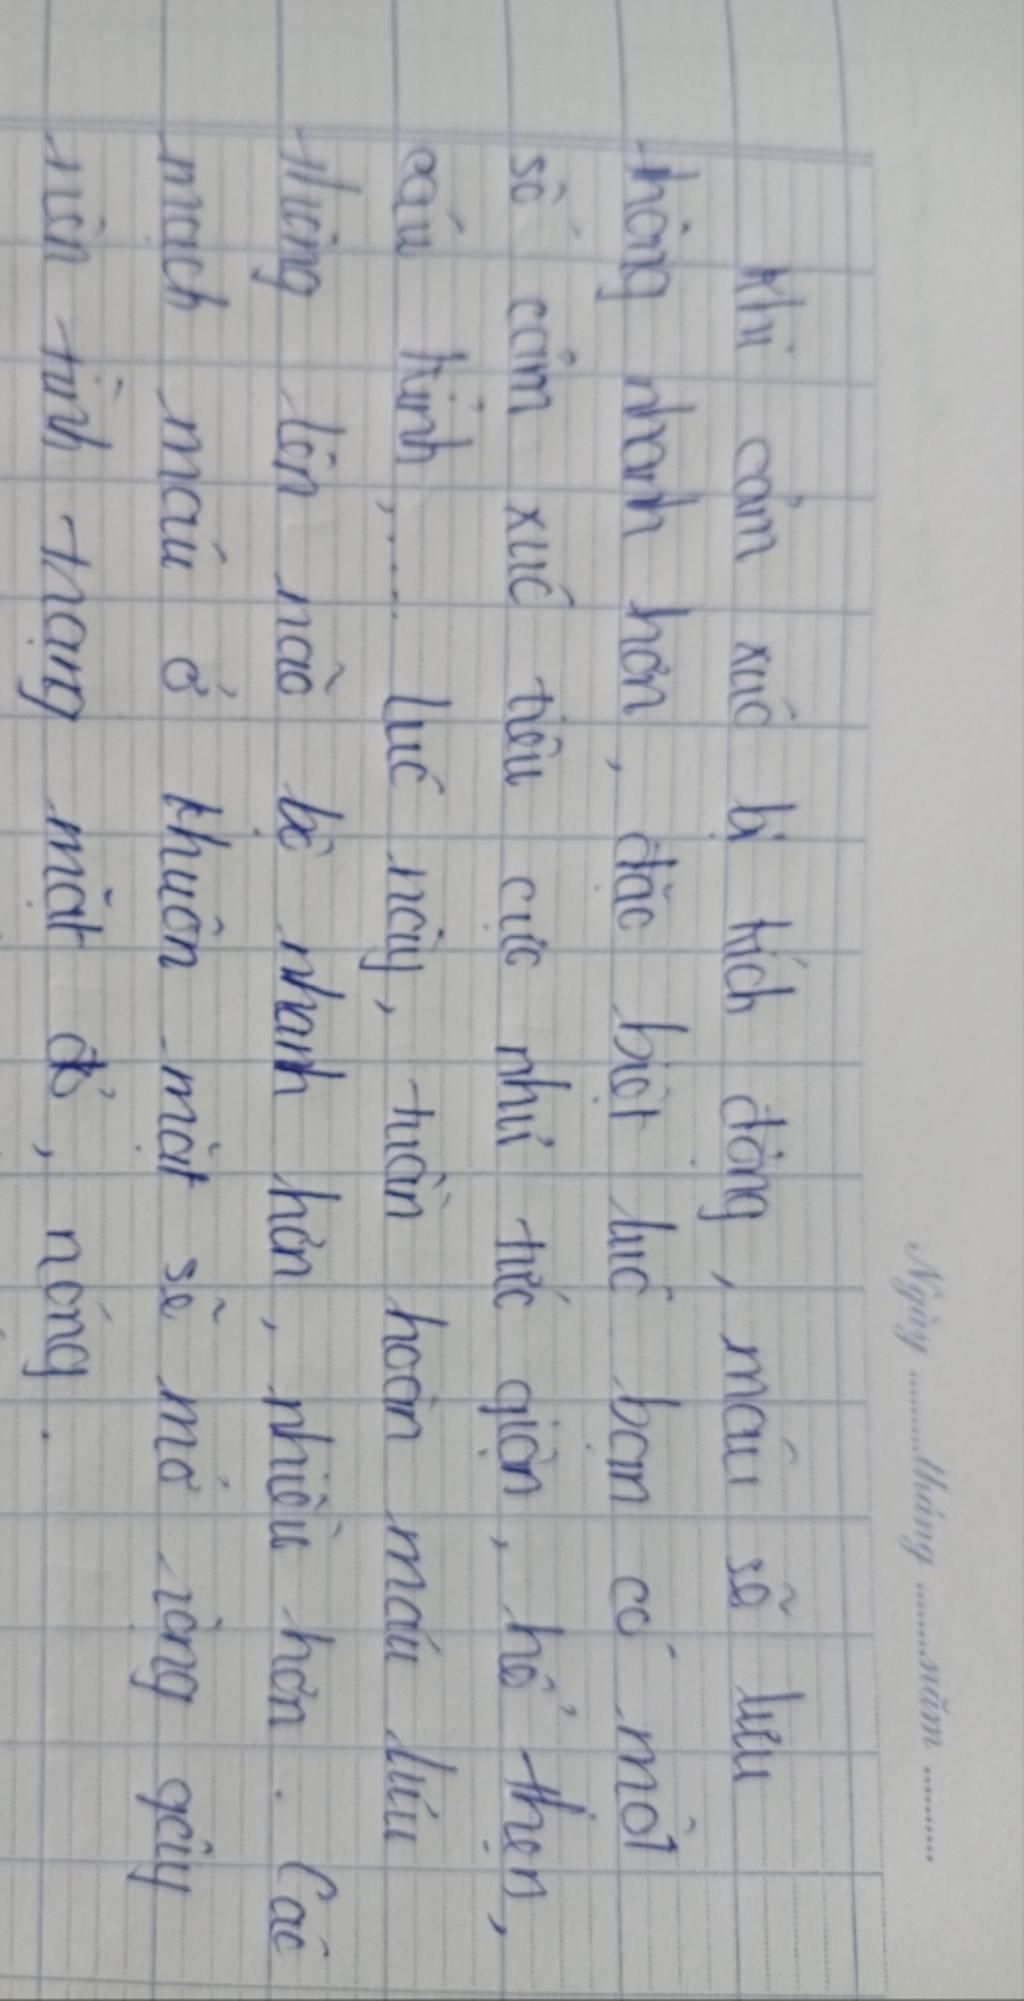 Ngày ........ tháng ........ năm ..........
Khi cảm xúc bị kích động, máu sẽ lưu
thông nhanh hơn, đặc biệt lúc bạn có một
số cảm xúc tiêu cực như tức giận, hổ thẹn,
cáu kỉnh,.... Lúc này, tuần hoàn máu lưu
thông lên não bộ nhanh hơn, nhiều hơn. Các
mạch máu ở khuôn mặt sẽ mở rộng gây
nên tình trạng mặt đỏ, nóng.